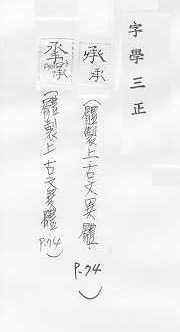 字學三正
承 承
(體製上古文異體
P.74)
承 承
(體製上古文異體
P.74)